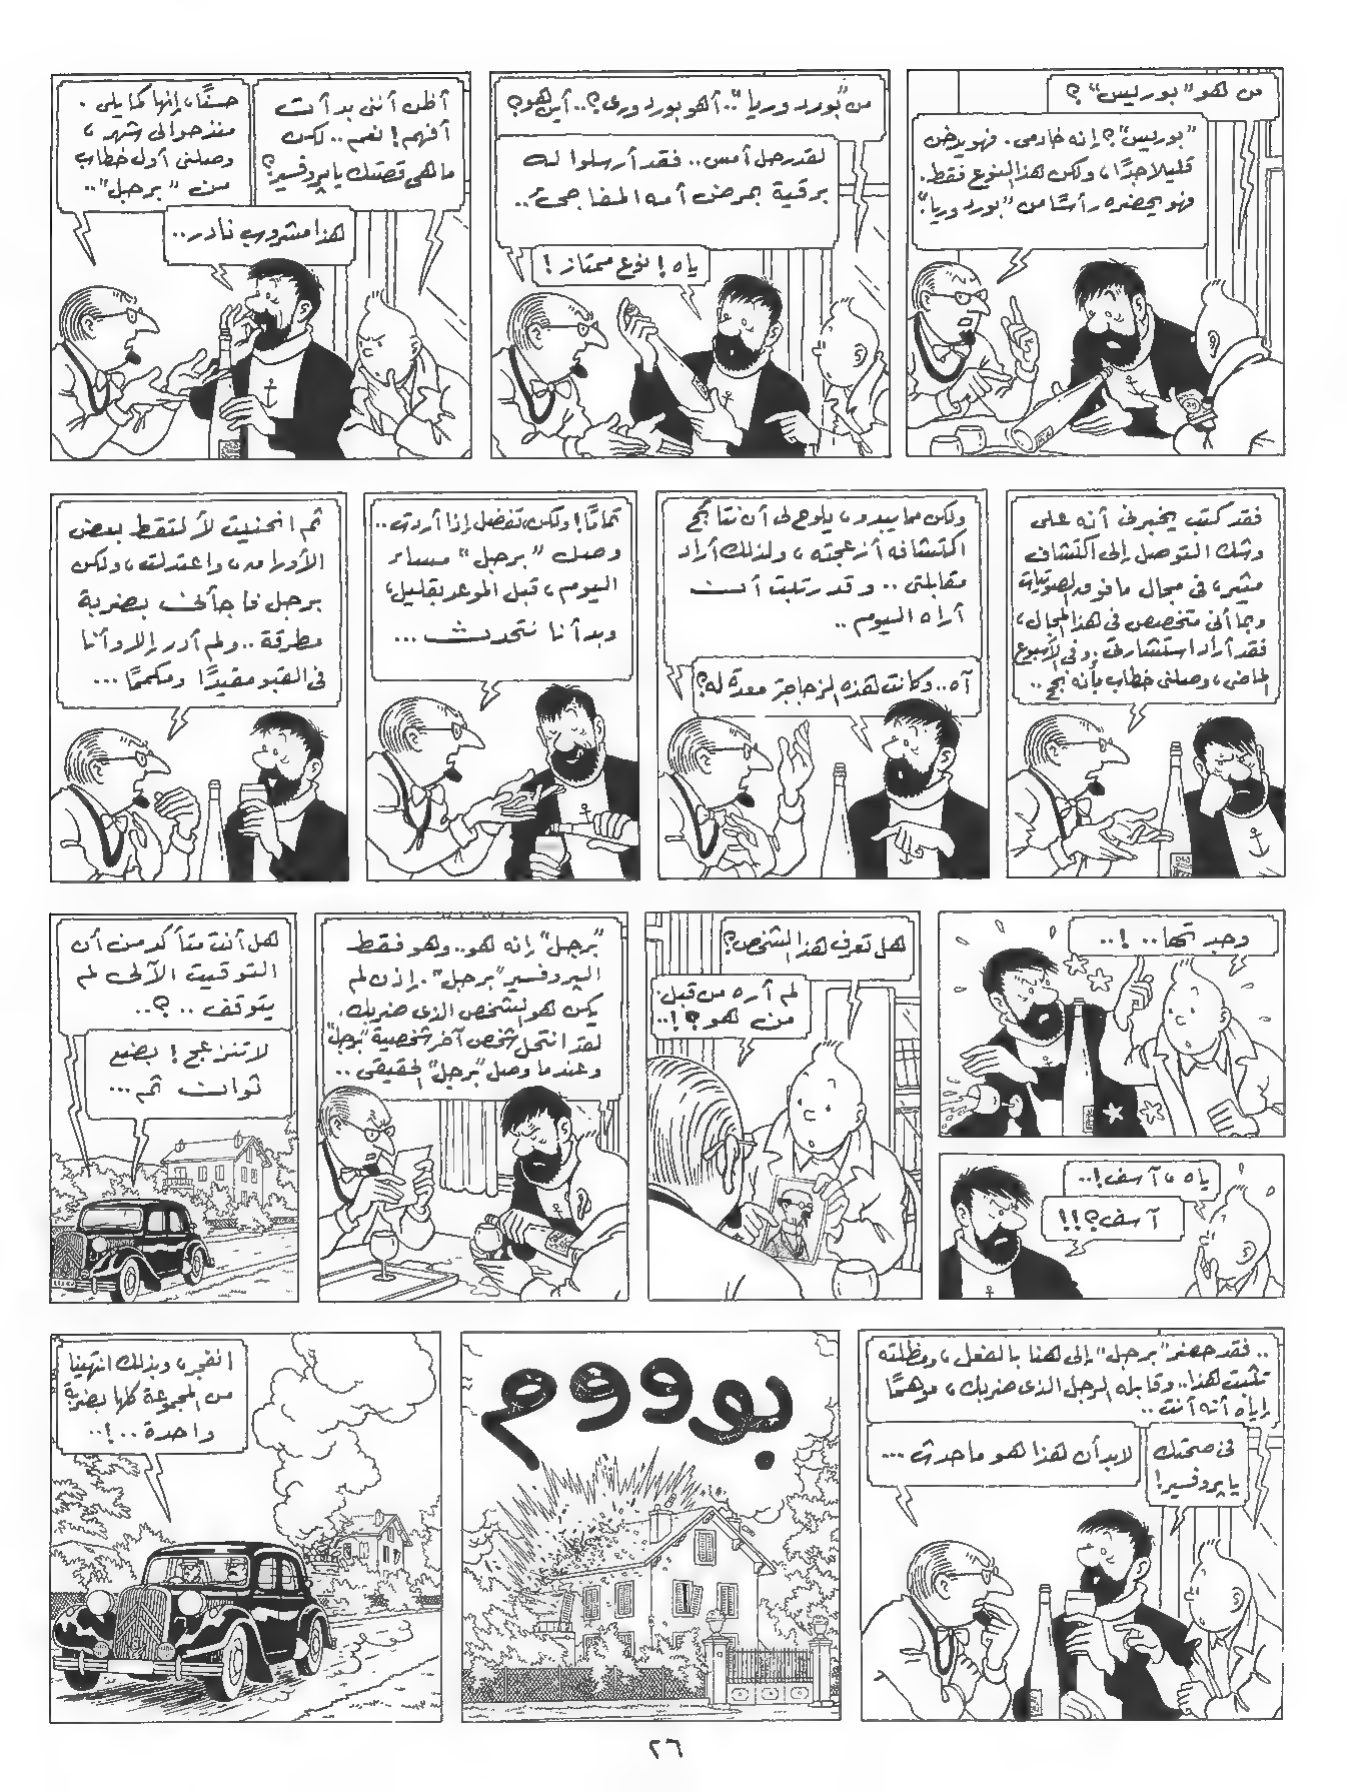 من هو "بوريس"؟
"بوريس"؟ إنه خادمى. فهو يرفض
قليلا جدًا، ولكن هذا النوع فقط.
فهو يحضره رأسًا من "بورد وريا".
من "بورد وريا"..ألهو بورد ورى؟.. أين هو؟
لقد رحل أمس.. فقد أرسلوا له
برقية بمرض أمه المفاجئ..
ياه! نوع ممتاز!
أظن أننى بدأت
أفهم! نعم.. لكن
ما هى قصتك يا پروفسير؟
حسنًا، إنها كما يلى.
منذ حوالى شهر،
وصلنى أول خطاب
من "برجل"..
هذا مشروب نادر..
فقد كتب يخبرنى أنه على
وشك التوصل إلى اكتشاف
مثير، فى مجال ما فوق الصوتيات
وبما أنى متخصص فى هذا المجال،
فقد أراد استشارتى. وفى الأسبوع
الماضى، وصلنى خطاب بأنه نجح..
ولكن مما يبدو، يلوح لى أن نتائج
اكتشافه أزعجته، ولذلك أراد
مقابلتى.. وقد رتبت أن
أراه اليوم..
آه.. وكانت هذه الزجاجة معدة له؟
تمامًا! ولكن، تفضل إذا أردت..
وصل "برجل" مساء
اليوم، قبل الموعد بقليل،
وبدأنا نتحدث...
ثم انحنيت لألتقط بعض
الأوراق، واعتدلت، ولكن
برجل فاجأنى بضربة
مطرقة.. ولم أدر إلا وأنا
فى القبو مقيدًا ومكممًا...
وجدتها..!..
ياه، آسف!..
آسف؟!!
هل تعرف هذا الشخص؟
لم أره من قبل.
من هو؟!..
"برجل" إنه هو.. وهو فقط
الپروفسير "برجل". إذن لم
يكن هو الشخص الذى ضربك.
لقد انتحل شخص آخر شخصية "برجل"
وعندما وصل "برجل" الحقيقى..
هل أنت متأكد من أن
التوقيت الآلى لم
يتوقف..؟..
لا تنزعج! بضع
ثوانت ثم...
.. فقد حضر "برجل" إلى هنا بالفعل، ومظلته
تثبت هذا.. وقابله الرجل الذى ضربك، موهمًا
إياه أنه أنت..
فى صحتك
يا پروفسير!
لابد أن هذا هو ما حدث...
بوووووم
انفجر، وبذلك انتهينا
من المجموعة كلها بضربة
واحدة..!..
٢٦